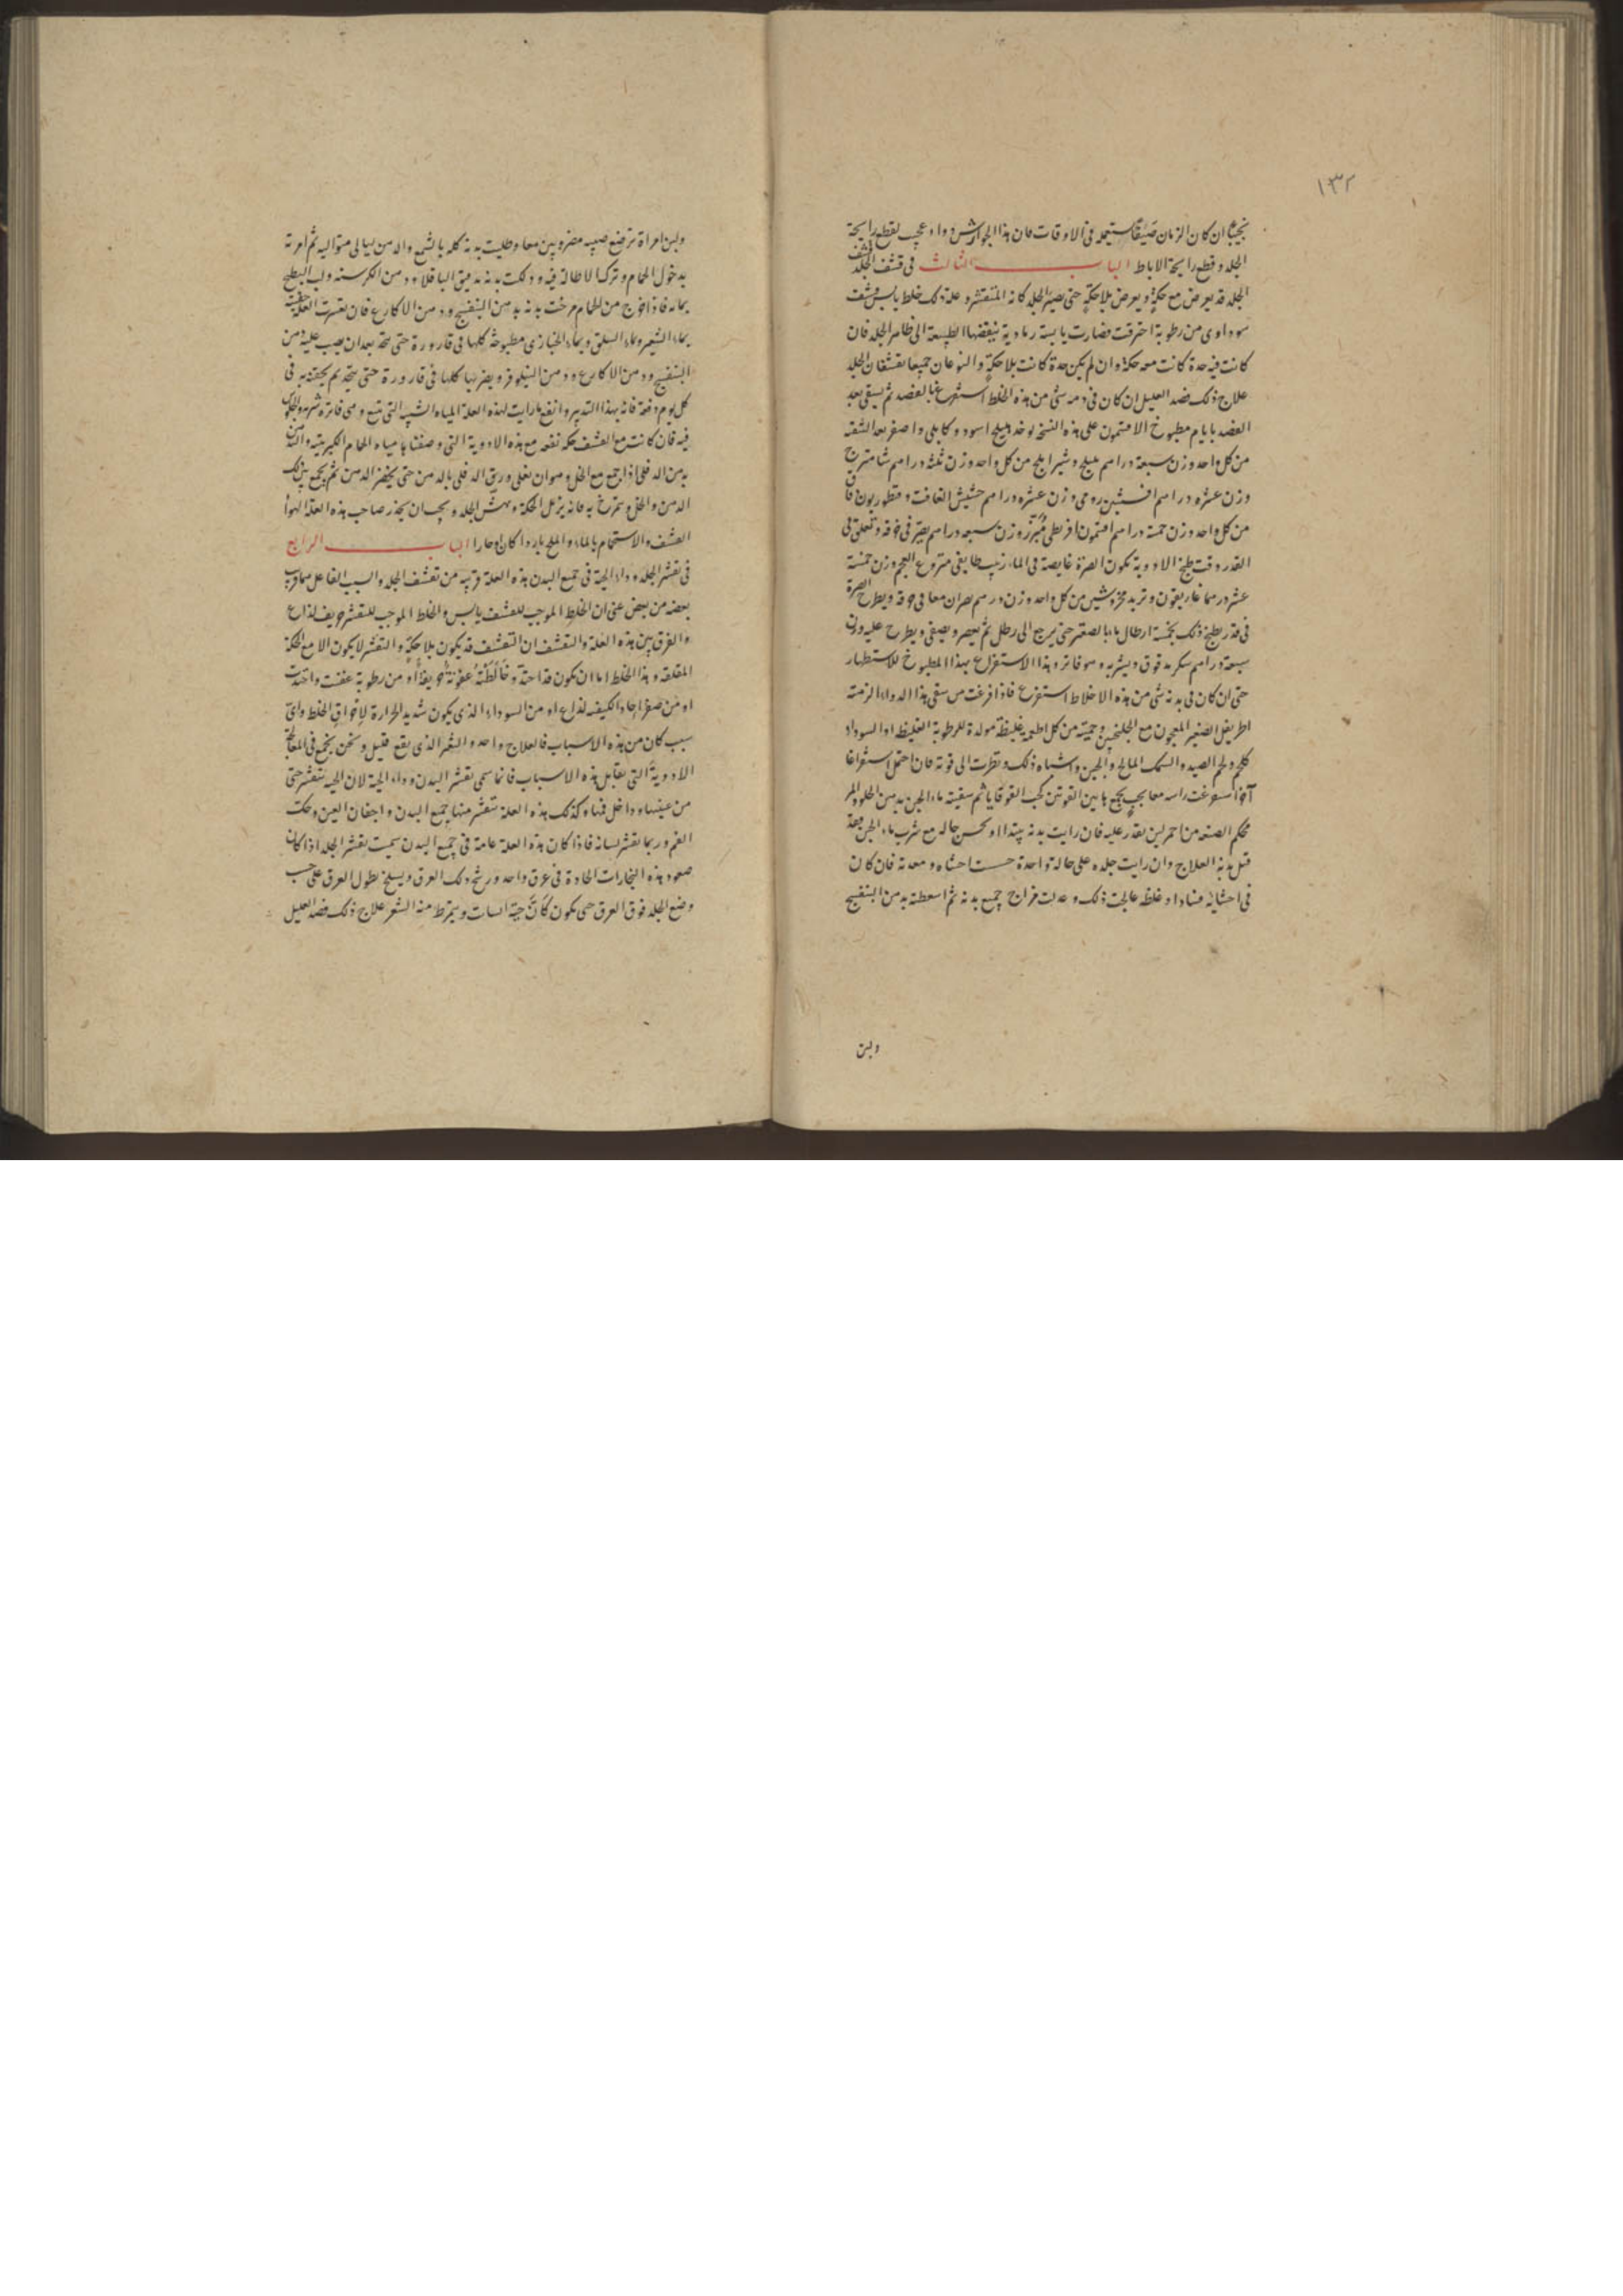 ١٣٢
ان كان الزمان صيفا فى الاوقات فان هذا الجوارشن دواء عجيب لقطع رايحة
الجلد وقطع رايحة الاباط الباب الثالث فى قشف الجلد
الجلد قد يعرض مع حكة ويعرض بلا حكة حتى يصير الجلد كانه المتقشر وعلة ذلك خلط يابس
سوداوى من رطوبة احترقت فصارت يابسة رمادية ينفضها الطبيعة الى ظاهر الجلد فان
كانت فيه حدة كانت معه حكة وان لم يكن حدة كانت بلا حكة والنوعان جميعا تقشفان الجلد
علاج ذلك فصد العليل ان كان فى دمه شئ من هذه الخلط استفرغنا بالفصد ثم يسقى بعد
الفصد بايام مطبوخ الافتيمون على هذه النسخه يوخذ هليلج اسود وكابلى واصفر
من كل واحد وزن سبعة دراهم بليلج وشير املج من كل واحد وزن ثلثه دراهم شاهترج
وزن عشره دراهم افسنتين رومى وزن عشره دراهم حشيش الغافت وقنطوريون
من كل واحد وزن خمسة دراهم افتيمون اقريطى وزن سبعه دراهم يصر فى خرقه وتعلق فى
القدر وقت طبخ الادوية تكون الصرة غايصة فى الماء زبيب طايفى منزوع العجم وزن خمسة
عشر درهما غاريقون وتربد من كل واحد وزن درهم يصران معا فى خرقه ويطرح الصرة
فى قدر يطبخ ذلك بخمسة ارطال ماء حتى يرجع الى رطل ثم يعصر ويصفى ويطرح عليه وزن
سبعة دراهم سكر مدقوق ويشربه وهو فاتر وهذا الاستفراغ بهذا المطبوخ للاستظهار
حتى ان كان فى بدنه شئ من هذه الاخلاط استفرغ فاذا فرغت من سقى هذا الدواء الزمته
اطريفل الصغير المعجون مع الجلنجبين وحميته من كل اطعمه غليظة مولدة للرطوبة الغليظه او السوداء
ولحم الصيد والسمك المالح والجبن واشباه ذلك ونظرت الى قوته فان احتمل استفراغا
آخر استفرغت راسه معا بحب يجمع ما بين القوتين كحب القوقايا ثم سقيته ماء الجبن بدهن الحلو
محكم الصنعه من احمر لبن يقدر عليه فان رايت بدنه يبتدا او تحسن حاله مع شرب ماء الجبن
قبل بدنه العلاج وان رايت جلده على حالة واحدة حسست احشاه ومعدته فان كان
فى احشايه فسادا وغلظه عالجت ذلك وعدلت مزاج جميع بدنه ثم اسعطته بدهن البنفسج
ولبن
ولبن امراة ترضع صبيه مضروبين معا وطليت بدنه كله بالشمع والدهن ليالى متواليه ثم امرته
بدخول الحمام وترك الاطالة فيه ودلكت بدنه بدقيق الباقلاء ودهن الكرسنه ولب البطيخ
بمائه فاذا خرج من الحمام مرخت بدنه بدهن البنفسج ودهن الاكارع فان تعسرت العلة
بماء الشعير وماء السلق وماء الخبازى مطبوخة كلها فى قارورة حتى تتحد بعد ان يصب عليه دهن
البنفسج ودهن الاكارع ودهن النيلوفر ويضربها كلها فى قارورة حتى يتحد ثم يحقنه به فى
كل يوم دفعة فانه بهذا التدبير وانفع ما رايت لهذه العلة المياه الشبيه التى تنبع وهى فاتره شربه والجلوس
فيه فان كانت مع القشف حكه نفعه مع هذه الادوية التى وصفنا مياه الحمام الكبريتيه والتدهن
بدهن الدفلى اذا جمع مع الخل وهو ان يغلى ورق الدفلى بالدهن حتى يخضر الدهن ثم يجمع بين ذلك
الدهن والخل ويتمرخ به فانه يزيل الحكة وبهش الجلد ويجب ان يحذر صاحب هذه العلة الهوا
القشف والاستحمام بالماء والملح باردا كان او حارا الباب الرابع
فى تقشر الجلد وداء الحية فى جميع البدن هذه العلة قريبه من تقشف الجلد والسبب الفاعل لهما قريب
بعضه من بعض غير ان الخلط الموجب للقشف يابس والخلط الموجب للتقشر حريف لذاع
والفرق بين هذه العلة والتقشف ان التقشف قد يكون بلا حكة والتقشر لا يكون الا مع الحكة
المقلقه وهذا الخلط اما ان يكون قد احتد وخالطته عفونة حريفة او من رطوبة عفنت واحتدت
او من صفرا حاد الكيفيه لذاع او من السوداء الذى يكون شديد الحرارة لاحتراق الخلط واى
سبب كان من هذه الاسباب فالعلاج واحد والتغير الذى يقع قليل ونحن نجمع فى المعالجة
الادوية التى تقابل هذه الاسباب فانما سمى تقشر البدن وداء الحية لان الحيه تتقشر حتى
من عينيها وداخل فمها وكذلك هذه العلة تتقشر منها جميع البدن واجفان العين وحنك
الفم وربما تقشر لسانه فاذا كان هذه العلة عامة فى جميع البدن سميت تقشر الجلد اذا كان
صعود هذه البخارات الحادة فى عرق واحد ورشح ذلك العرق ويسلخ بطول العرق على حسب
وضع الجلد فوق العرق حتى يكون كان حية انسابت ويتمرط منه الشعر علاج ذلك فصد العليل